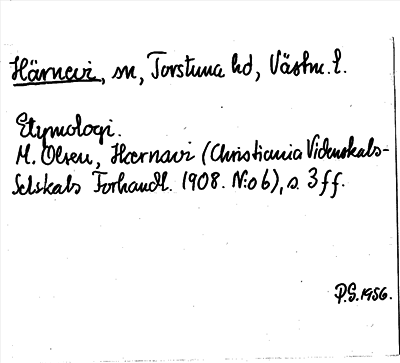 Härnevi, sn, Torstuna hd, Västm. l.
Etymologi.
M. Olsen, Hærnavi (Christiania Videnskabs-
Selskabs Forhandl. 1908. N:o 6), s. 3 ff.
P.G. 1956.